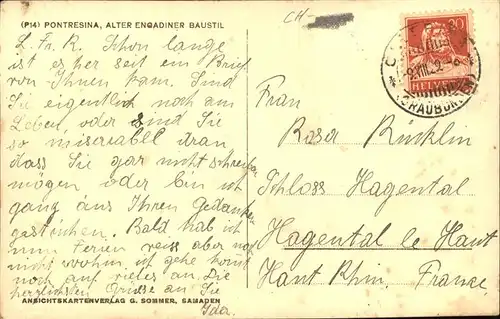 (P14) PONTRESINA, ALTER ENGADINER BAUSTIL
CH
L. Fr. R. Schon lange
ist es her seit ein Brief
von Ihnen kam. Sind
Sie eigentlich noch am
Leben, oder sind Sie
so miserabel dran
dass Sie gar nicht schreiben
mögen oder bin ich
ganz aus Ihren Gedanken
gestrichen. Bald hab ich
nun Ferien weiss aber noch
nicht wohin, ich gehe
noch auf vieles an. Die
herzlichsten Grüsse an Sie
Ida.
ANSICHTSKARTENVERLAG G. SOMMER, SAMADEN
20
HELVETIA
(GRAUBÜNDEN)
Frau
Rosa Rücklin
Schloss Hagental
Hagental le Haut
Haut Rhin, France